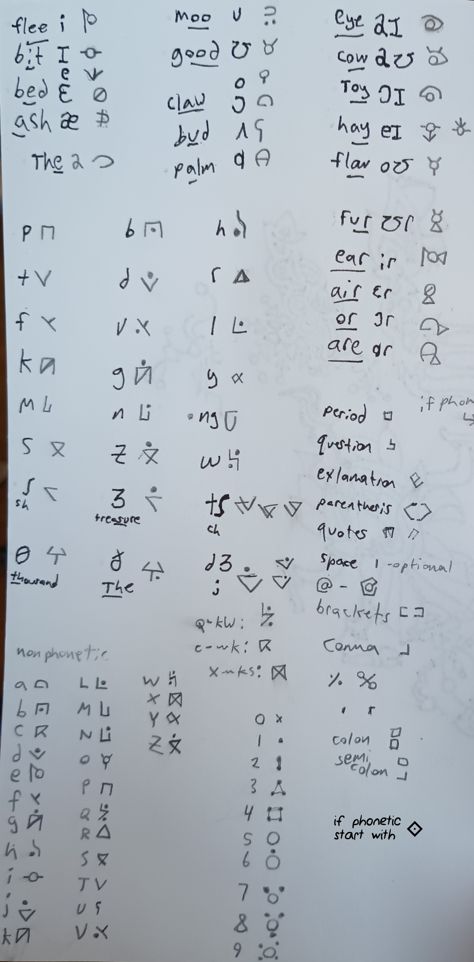 flee i
bit I
bed ɛ
e
ash æ
The ə
moo u
good ʊ
o
claw ɔ
bud ʌ
palm ɑ
eye aI
cow aʊ
Toy ɔI
hay eI
flow oʊ
fur ʊr
ear ir
air ɛr
or ɔr
are ɑr
p
t
f
k
M
S
ʃ
sh
θ
thousand
b
d
v
g
n
z
ʒ
treasure
ð
The
h
r
l
y
ng
w
tʃ
ch
dʒ
j
Q-kw:
c-wk:
x-mks:
if phon
period
question
exlamation
parenthesis
quotes
space | -optional
@ -
brackets
Comma
%
'
colon
semi
colon
if phonetic
start with
nonphonetic
a
b
c
d
e
f
g
h
i
j
k
L
M
N
O
P
Q
R
S
T
U
V
W
X
Y
Z
0
1
2
3
4
5
6
7
8
9